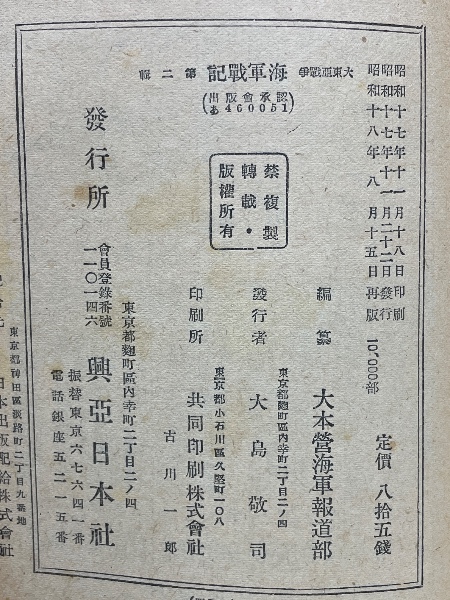 大東亞戰爭 海軍戰記 第二輯
（出版會承認 あ460051）
昭和十七年十一月十八日印刷
昭和十七年十一月二十二日發行
昭和十八年八月十五日再版 10,000部
定價 八拾五錢
禁複製
轉載・
版權所有
編纂 大本營海軍報道部
東京都麴町區內幸町二丁目二ノ四
發行者 大島敬司
東京都小石川區久堅町一〇八
印刷所 共同印刷株式會社
古川一郎
東京都麴町區內幸町二丁目二ノ四
發行所 興亞日本社
會員登錄番號
一一〇一四六
振替東京六七六四一番
電話銀座五二一五番
東京都神田區淡路町二丁目九番地
日本出版配給株式會社